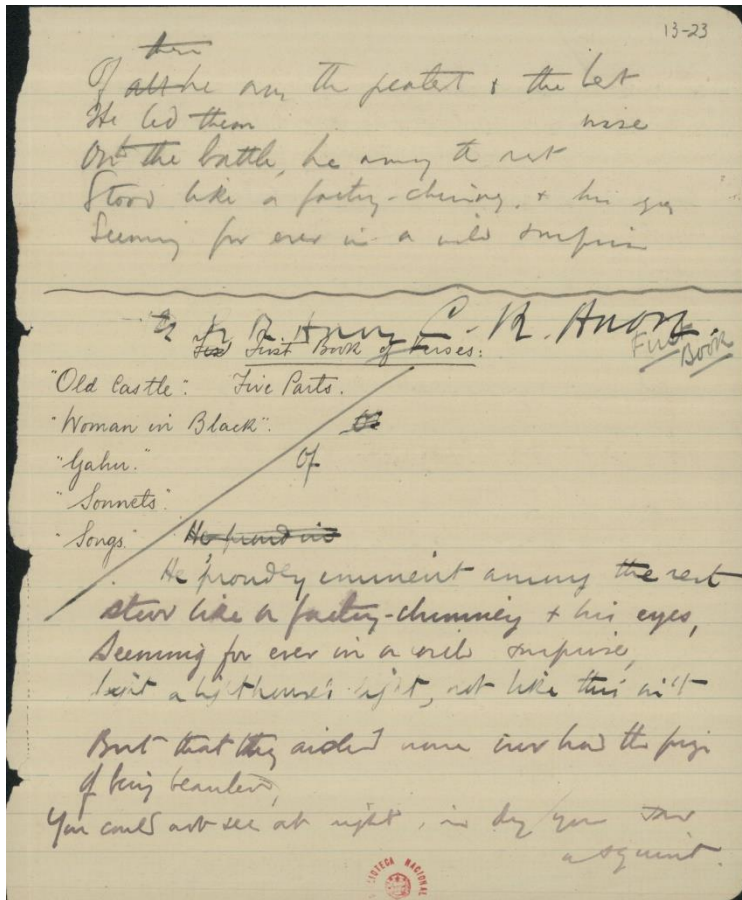 13-23
them
Of all he was the greatest & the best
He led them wise
On the battle, he among the rest
Stood like a factory-chimney, & his eyes
Seeming for ever in a wild surprise
C. R. Anon.
First Book of Verses:
First
Book
"Old Castle": Five Parts.
"Woman in Black".
"Gahu."
Of
"Sonnets".
"Songs." He proud in
He, proudly eminent among the rest
Stood like a factory-chimney & his eyes,
Seeming for ever in a wild surprise,
a lighthouse's light, not like this isn't
But that they aided none ever had the
of being
You could not see at night, in day you saw
a squint.
BIBLIOTECA NACIONAL